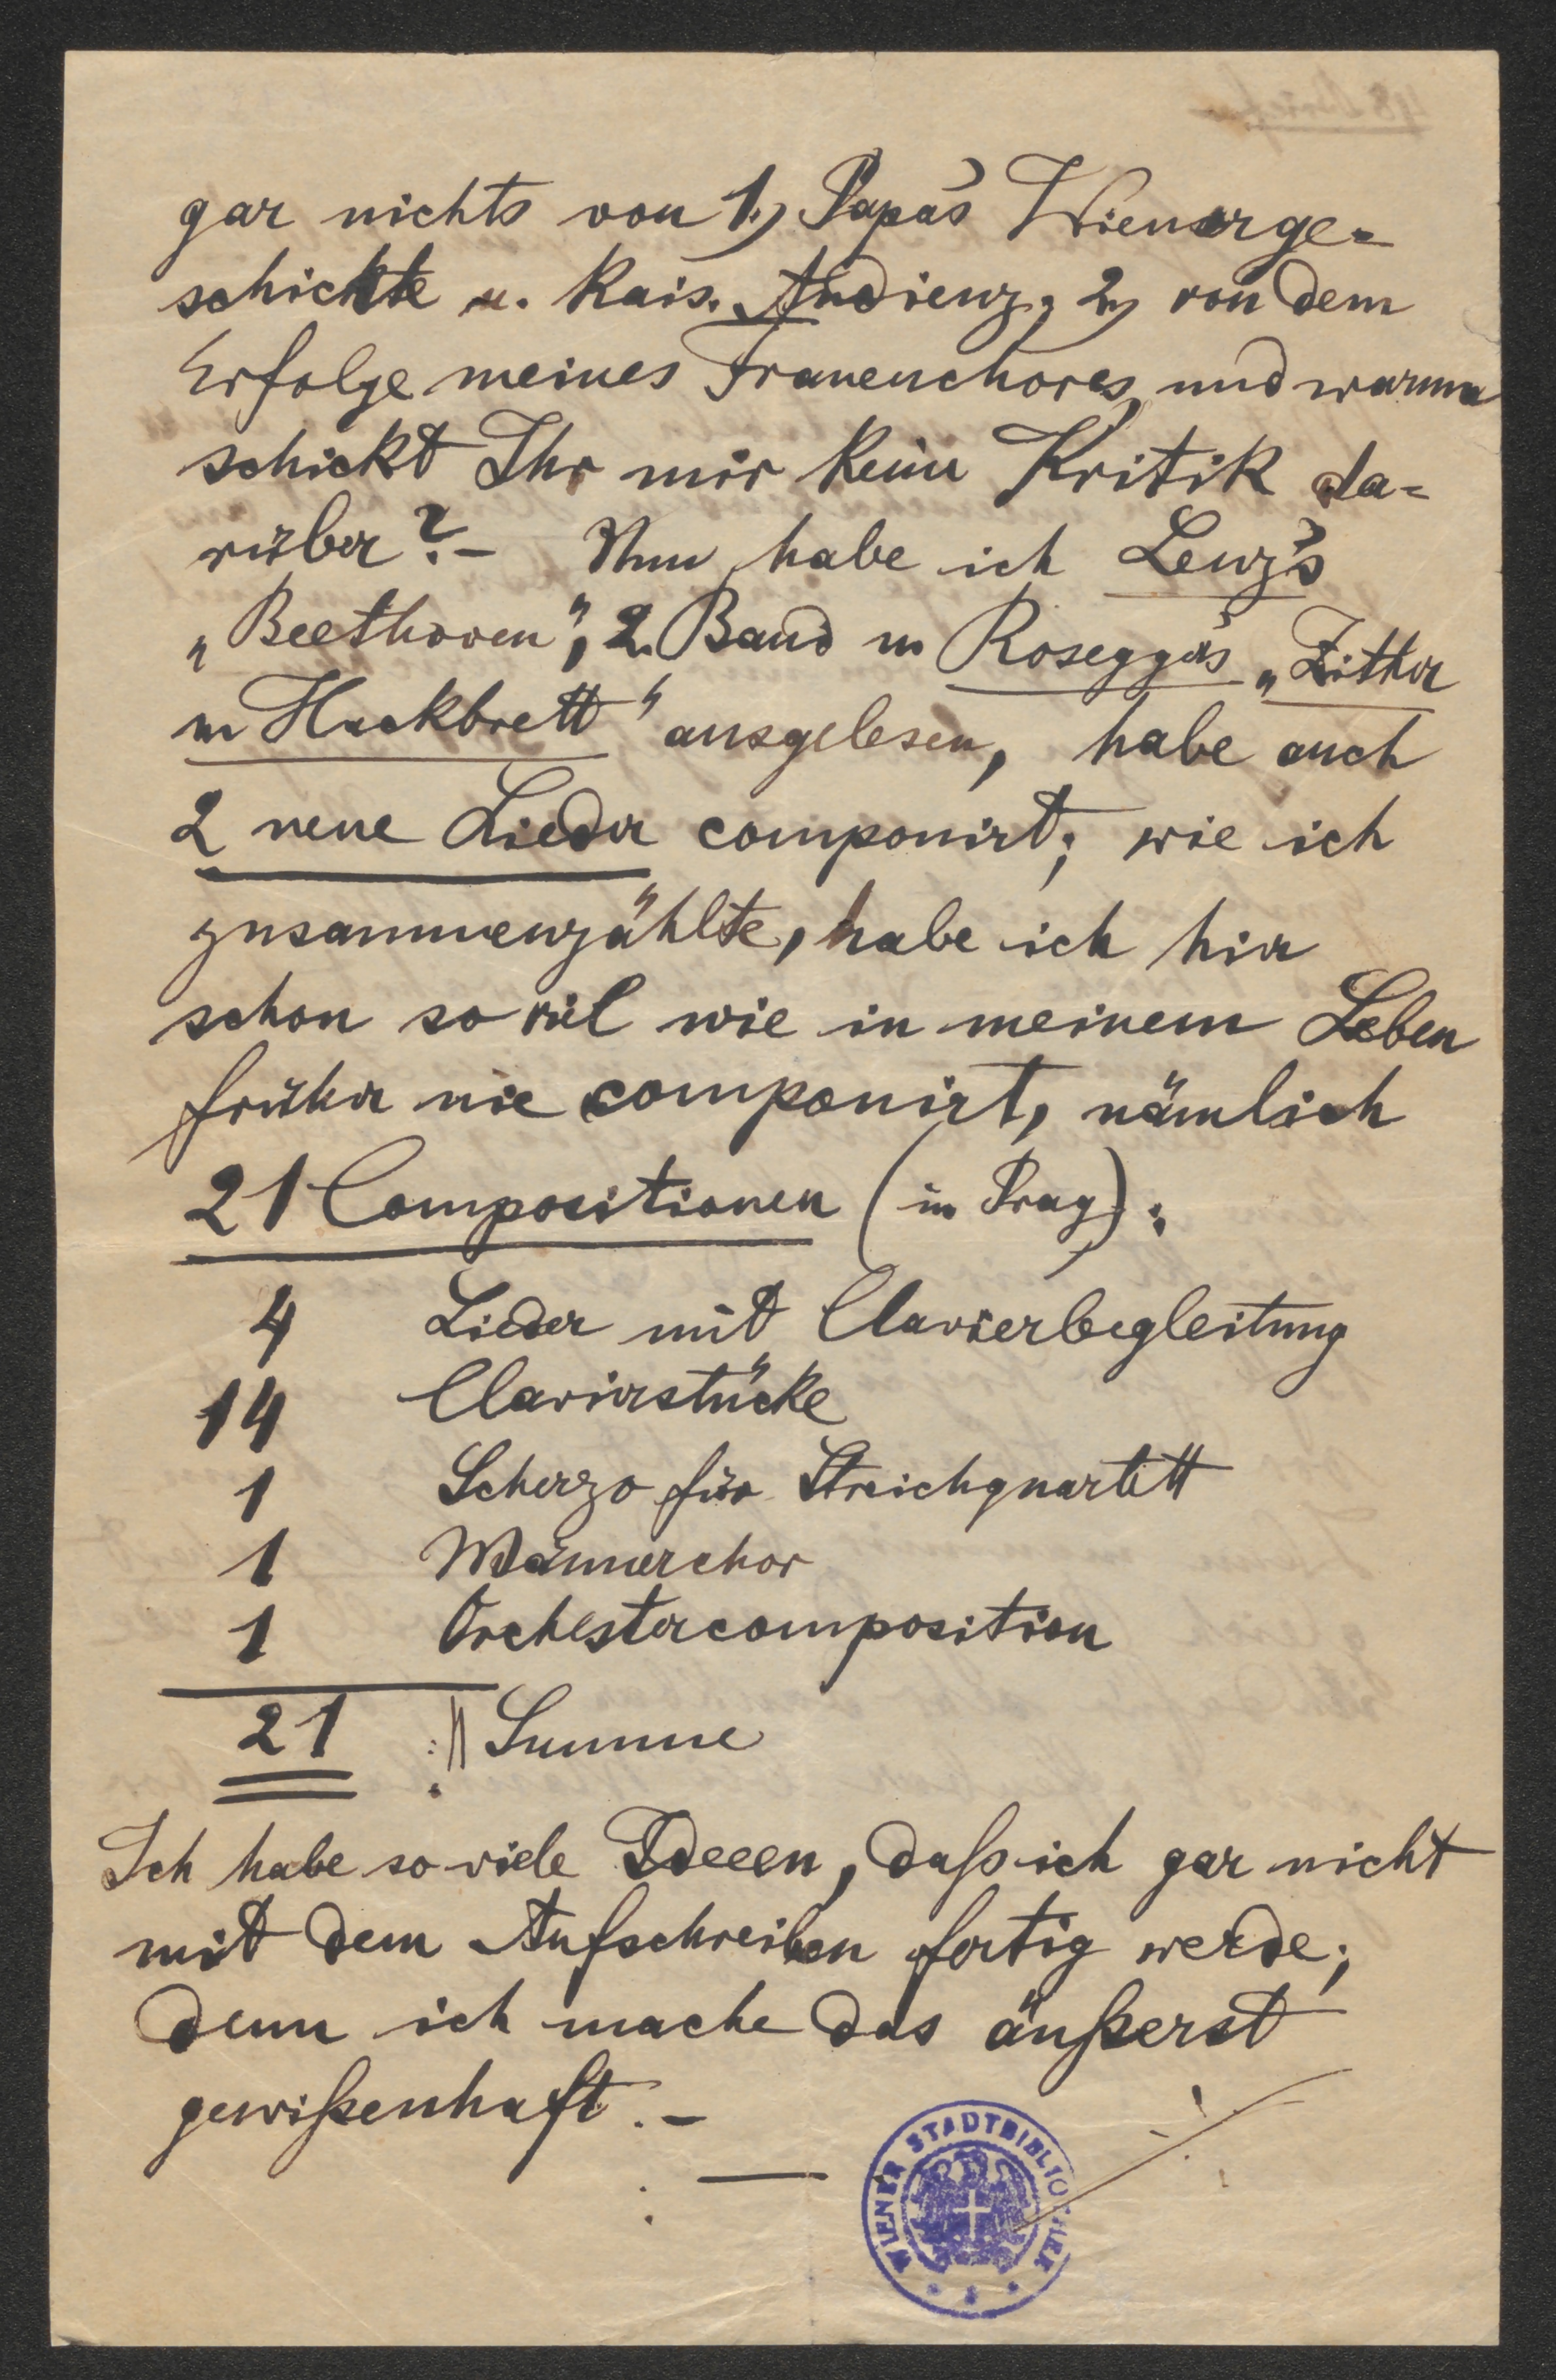 gar nichts von 1.) Papa's Wienerge-
schichte u. Kais. Audienz, 2.) von dem
Erfolge meines Frauenchores, und warum
schickt Ihr mir keine Kritik da-
rüber? – Nun habe ich Lenz's
„Beethoven“, 2. Band u. Rosegger's „Zither
u. Hackbrett“ ausgelesen, habe auch
2 neue Lieder componirt; wie ich
zusammenzählte, habe ich hier
schon so viel wie in meinem Leben
früher nie componirt, nämlich
21 Compositionen (in Prag):
4 Lieder mit Clavierbegleitung
14 Clavierstücke
1 Scherzo für Streichquartett
1 Männerchor
1 Orchestercomposition
21 Summe
Ich habe so viele Ideeen, daß ich gar nicht
mit dem Aufschreiben fertig werde;
denn ich mache das äußerst
gewißenhaft. –
WIENER STADTBIBLIOTHEK